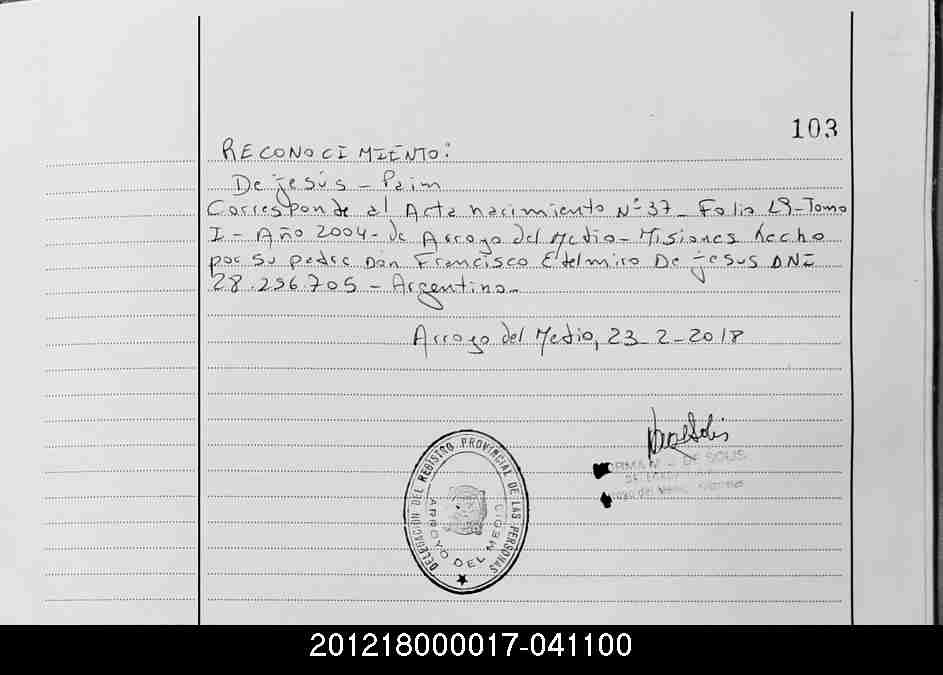 103
RECONOCIMIENTO:
De jesús - Paim
Corresponde al Acta nacimiento Nº 37 - Folio 19 - Tomo
I - Año 2004 - de Arroyo del Medio - Misiones hecho
por su padre Don Francisco Edelmiro De jesus DNI
28.256.705 - Argentino -
Arroyo del Medio, 23-2-2018
DELEGACIÓN DEL REGISTRO PROVINCIAL DE LAS PERSONAS
ARROYO DEL MEDIO
DE SOLIS
201218000017-041100